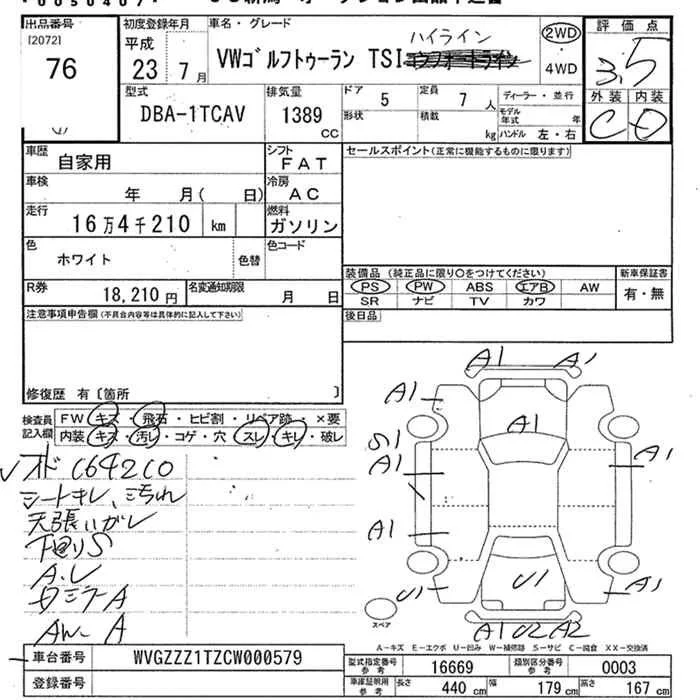 出品番号
[2072]
76
初度登録年月
平成
23 7月
車名・グレード
ハイライン
VWゴルフトゥーラン TSI
2WD
・
4WD
評価点
3.5
外装 内装
C D
型式
DBA-1TCAV
排気量
1389
CC
ドア
5
定員
7 人
形状
積載
kg
ディーラー・並行
モデル年式 年
ハンドル 左・右
車歴
自家用
シフト
FAT
車検
年 月( 日)
冷房
AC
走行
16万4千210 km
燃料
ガソリン
色
ホワイト
色替
色コード
R券
18,210 円
名変通知期限
月 日
セールスポイント(正常に機能するものに限ります)
装備品 (純正品に限り〇をつけてください)
PS PW ABS エアB AW
SR ナビ TV カワ
新車保証書
有・無
後日品
注意事項申告欄(不具合内容等は具体的に記入して下さい)
修復歴 有〔箇所 〕
検査員記入欄
FW キズ・飛石・ヒビ割・リペア跡・×要
内装 キズ・汚レ・コゲ・穴・スレ・キレ・破レ
シートキレ、汚れ
下回りS
A.U
AW-A
A1 A1
A1
A1
S1
A1
A1
A1
U1
U1
A1
A1 U2 A2
スペア
A-キズ E-エクボ U-凹み W-補修跡 S-サビ C-腐食 XX-交換済
車台番号
WVGZZZ1TZCW000579
登録番号
型式指定番号 参考
16669
類別区分番号 参考
0003
車庫証明用 参考
長さ 440 cm 幅 179 cm 高さ 167 cm